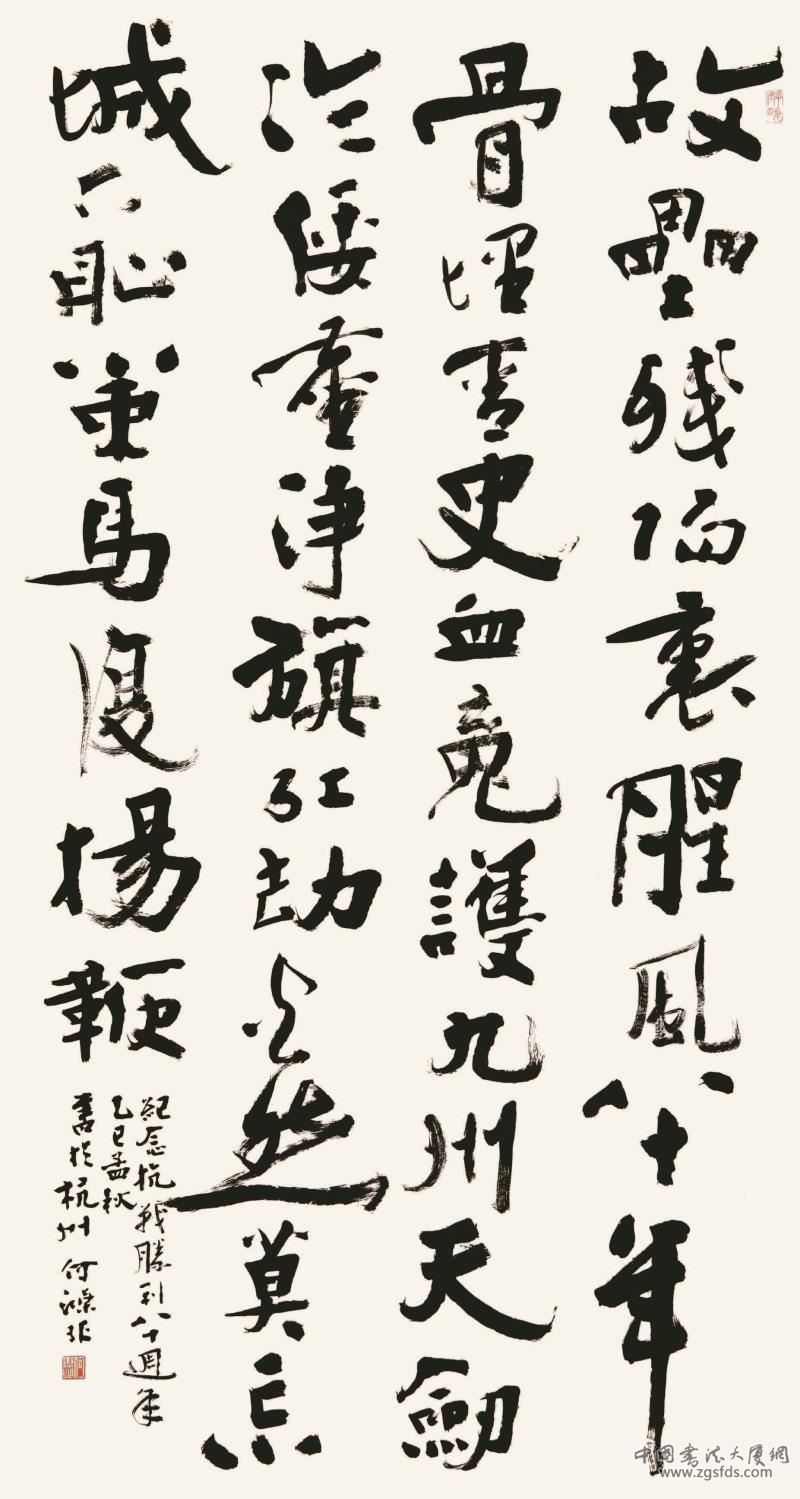 故壘殘陽裏腥風八十年
骨埋青史血魂護九州天劍
冷倭塵淨旗紅劫火然莫忘
城下恥策馬復揚鞭
紀念抗戰勝利八十週年
乙巳孟秋
書於杭州 何滌非
中國書法大厦網
www.zgsfds.com